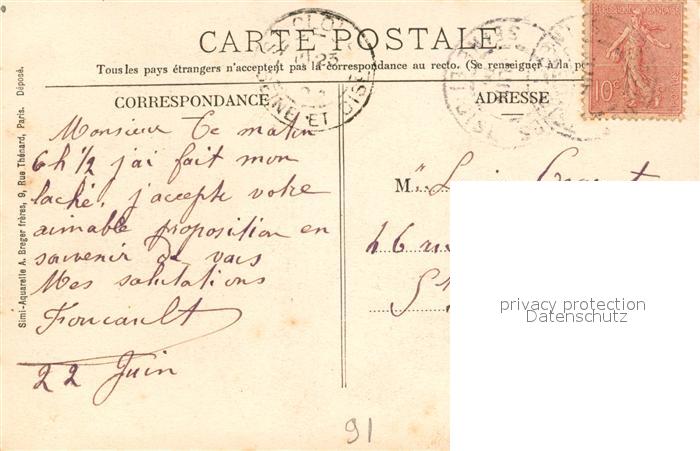 CARTE POSTALE
Tous les pays étrangers n'acceptent pas la correspondance au recto. (Se renseigner à la po
CORRESPONDANCE
ADRESSE
Monsieur Ce matin
6 h 1/2 j'ai fait mon
laché, j'accepte votre
aimable proposition en
souvenir de vous
Mes salutations
Foucault
22 Juin
M
46 rue
St
Simi-Aquarelle A. Breger frères, 9, Rue Thénard, Paris. Déposé.
REPUBLIQUE FRANÇAISE
10c
SEINE ET OISE
privacy protection
Datenschutz
91